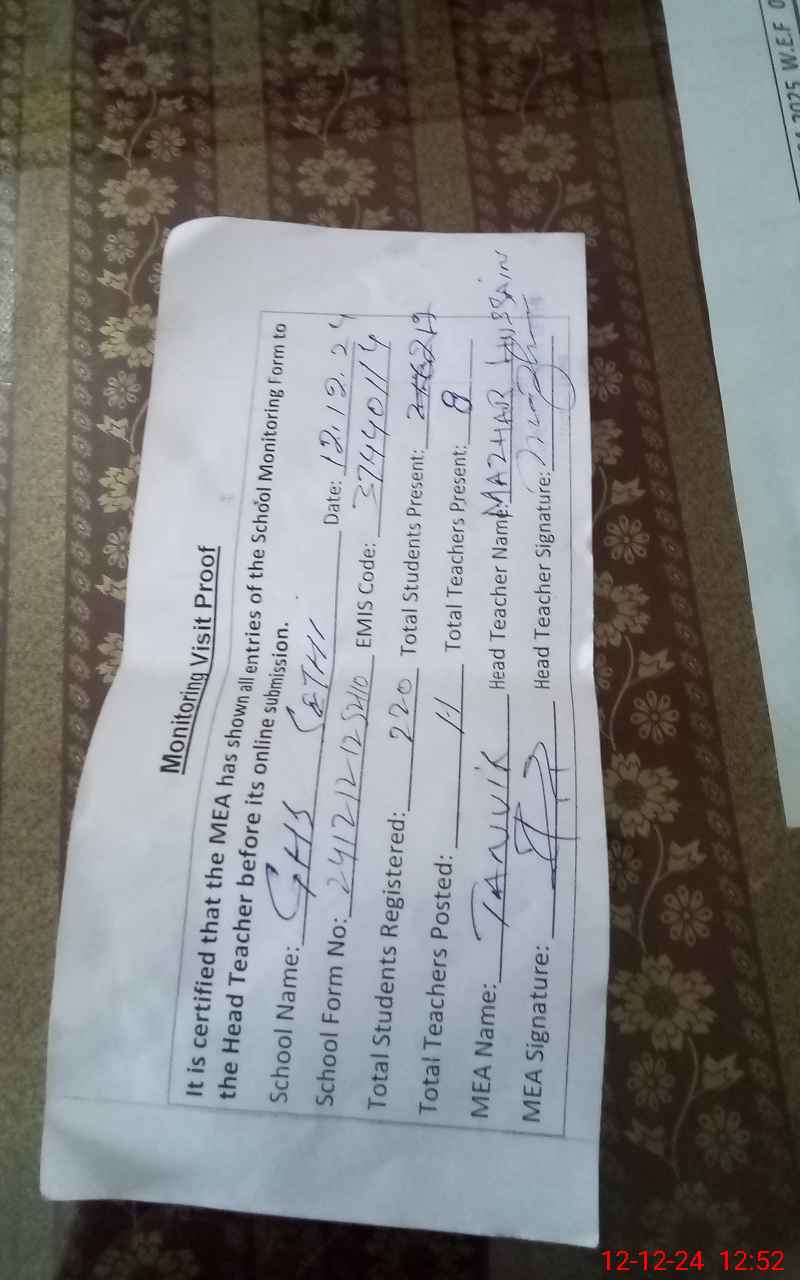 Monitoring Visit Proof
It is certified that the MEA has shown all entries of the School Monitoring Form to
the Head Teacher before its online submission.
School Name: GHS SETHI Date: 12.12.24
School Form No: 24121212125210 EMIS Code: 37440114
Total Students Registered: 220 Total Students Present: 219
Total Teachers Posted: 11 Total Teachers Present: 8
MEA Name: TANVIR Head Teacher Name: MAZHAR HUSSAIN
MEA Signature: Head Teacher Signature:
2025 W.E.F
12-12-24 12:52